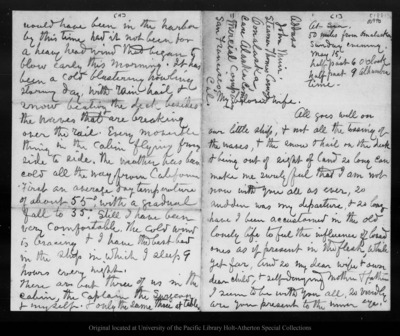 (3)
would have been in the harbor
by this time had it not been for
a heavy head wind that began to
blow early this morning. It has
been a cold blustering howling
stormy day, with rain hail, &
snow beating the deck, besides
the waves that are breaking
over the rail. Every movable
thing in the cabin flying from
side to side. The weather has been
cold all the way from California
First an average day temperature
of about 55° with a gradual
fall to 35°. Still I have been
very comfortable. The cold wind
is bracing & I have the best bed
in the ship in which I sleep 9
hours every night.
There are but three of us in the
cabin, the Captain, the Surgeon
& myself & only the same three at table
(1)
At sea
50 miles from
Sunday evening
May 15
half past 6 o'clock
half past 9
time.
Address
John Muir
Steamer
Care Alaska
Commercial Company
San Francisco
Cal.
My beloved wife.
All goes well on
our little ship, & not all the tossing of
the waves, & the snow & hail on the deck
& being out of sight of land so long can
make me surely feel that I am not
now with you all as ever, so
sudden was my departure, & so long
have I been accustomed in the old
lonely life to feel the influence of loved
ones as if present in the flesh, while
yet far. And so my dear wife, & own
dear child, & self-denying mother & father
I seem to be with you all, so vividly
are you present to the inner eye.
Original located at University of the Pacific Library Holt-Atherton Special Collections